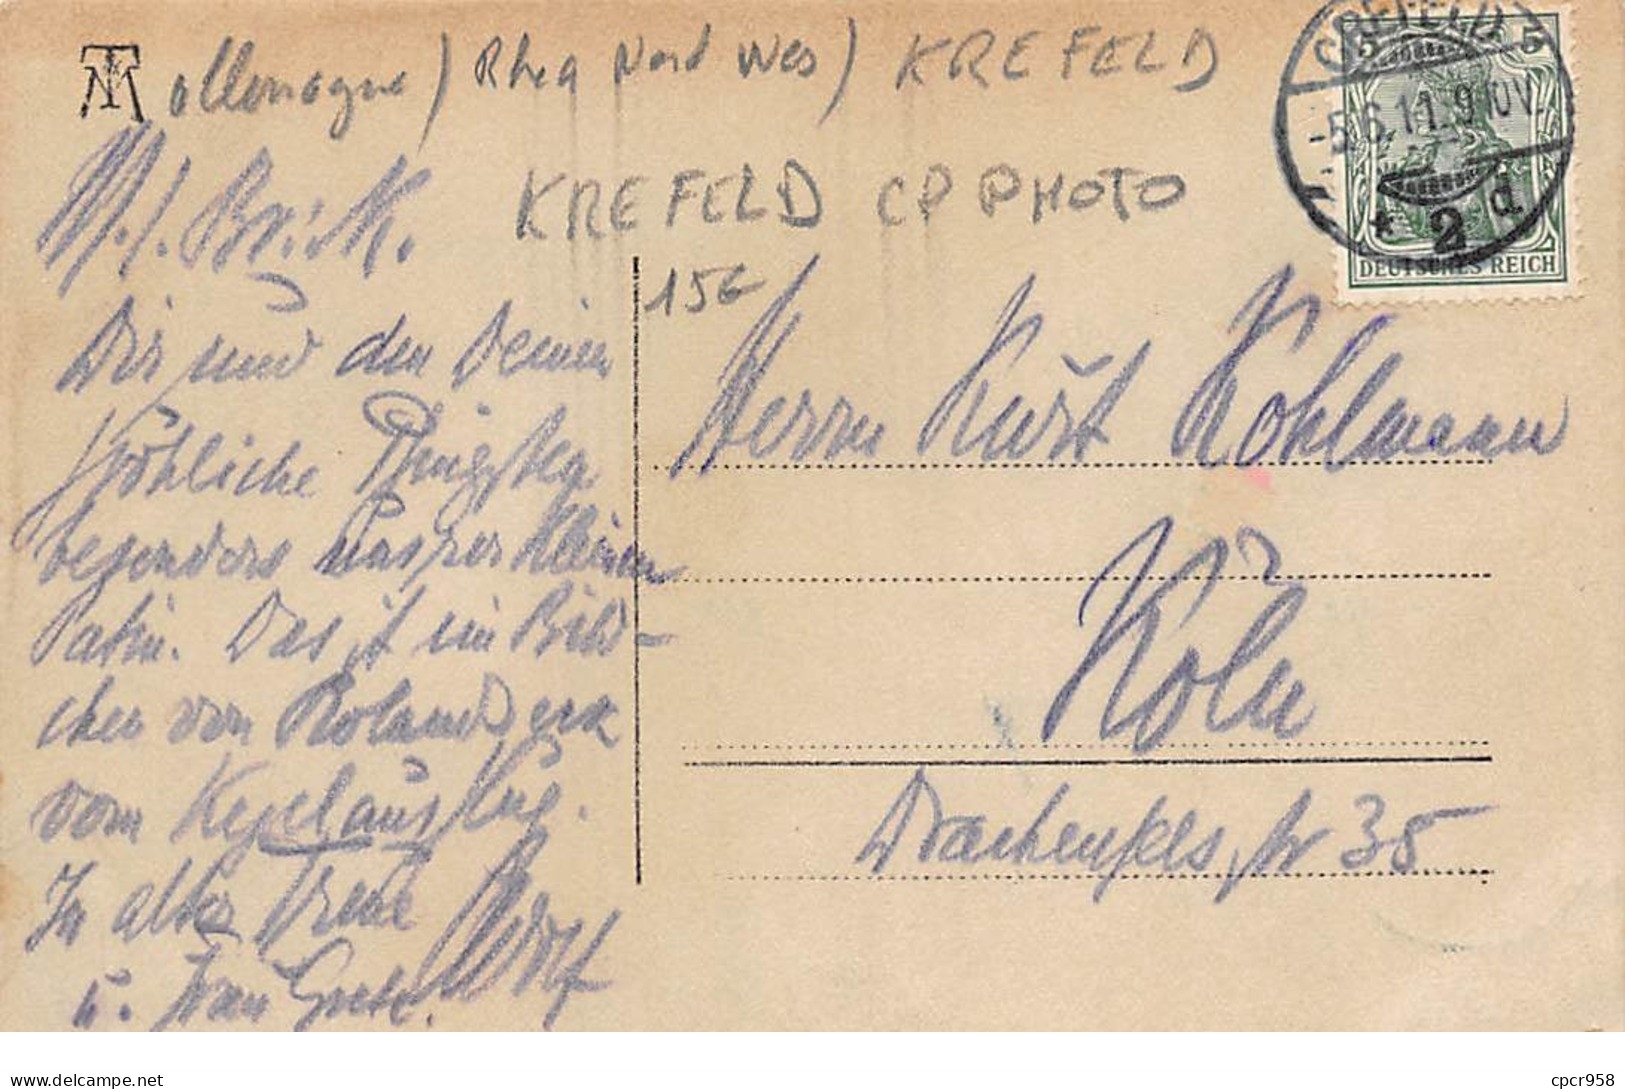 allemagne) Rhea Nord Wes) KREFELD
KREFELD CP PHOTO
15€
CREFELD
-5.6.11.9-10V.
* 2 d
5 5
DEUTSCHES REICH
M. l. Br. i. K.
Dir und den Deinen
fröhliche Pfingsten
besonders unsrer kleinen
Patin. Das ist ein Bild-
chen von Rolandseck
vom Kegelausflug.
In alter Treue Adolf
u. Frau Grete.
Herrn Kurt Kohlmann
Köln
Drachenfelsstr 35
cpcr958